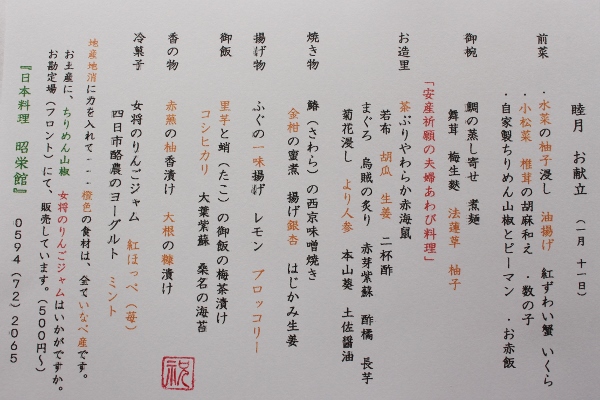 睦月 お献立 (一月 十一日)
前菜 ・水菜の柚子浸し 油揚げ 紅ずわい蟹 いくら
・小松菜 椎茸の胡麻和え ・数の子
・自家製ちりめん山椒とピーマン ・お赤飯
御椀 鯛の蒸し寄せ 煮麺
舞茸 梅生麩 法蓮草 柚子
「安産祈願の夫婦あわび料理」
お造里 茶ぶりやわらか赤海鼠
若布 胡瓜 生姜 二杯酢
まぐろ 烏賊の炙り 赤芽紫蘇 酢橘 長芋
菊花浸し より人参 本山葵 土佐醤油
焼き物 鰆(さわら)の西京味噌焼き
金柑の蜜煮 揚げ銀杏 はじかみ生姜
揚げ物 ふぐの一味揚げ レモン ブロッコリー
御飯 里芋と蛸(たこ)の御飯の梅茶漬け
コシヒカリ 大葉紫蘇 桑名の海苔
香の物 赤蕪の柚香漬け 大根の糠漬け
祝
冷菓子 女将のりんごジャム 紅ほっぺ(苺)
四日市酪農のヨーグルト ミント
地産地消に力を入れて---橙色の食材は、全ていなべ産です。
お土産に、ちりめん山椒 女将のりんごジャムはいかがですか。
お勘定場(フロント)にて、販売しています。(500円〜)
『日本料理 昭栄館』 0594(72)2065